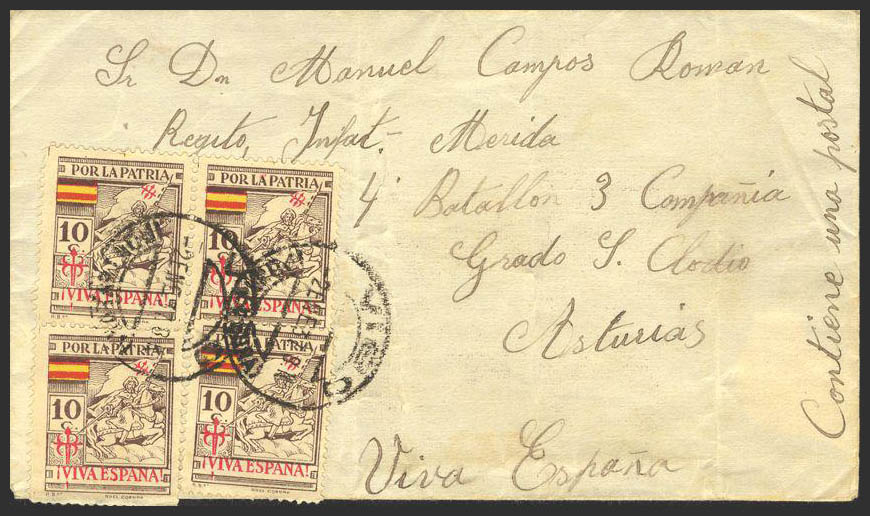 Sr Dn Manuel Campos Roman
Regito, Infat. Merida
4º Batallon 3 Compañia
Grado S. Clodio
Asturias
Viva España
Contiene una postal
POR LA PATRIA
10
C.
¡VIVA ESPAÑA!
POR LA PATRIA
10
¡VIVA ESPAÑA!
POR LA PATRIA
10
C.
¡VIVA ESPAÑA!
ROEL CORUÑA
10
C.
¡VIVA ESPAÑA!
ROEL CORUÑA